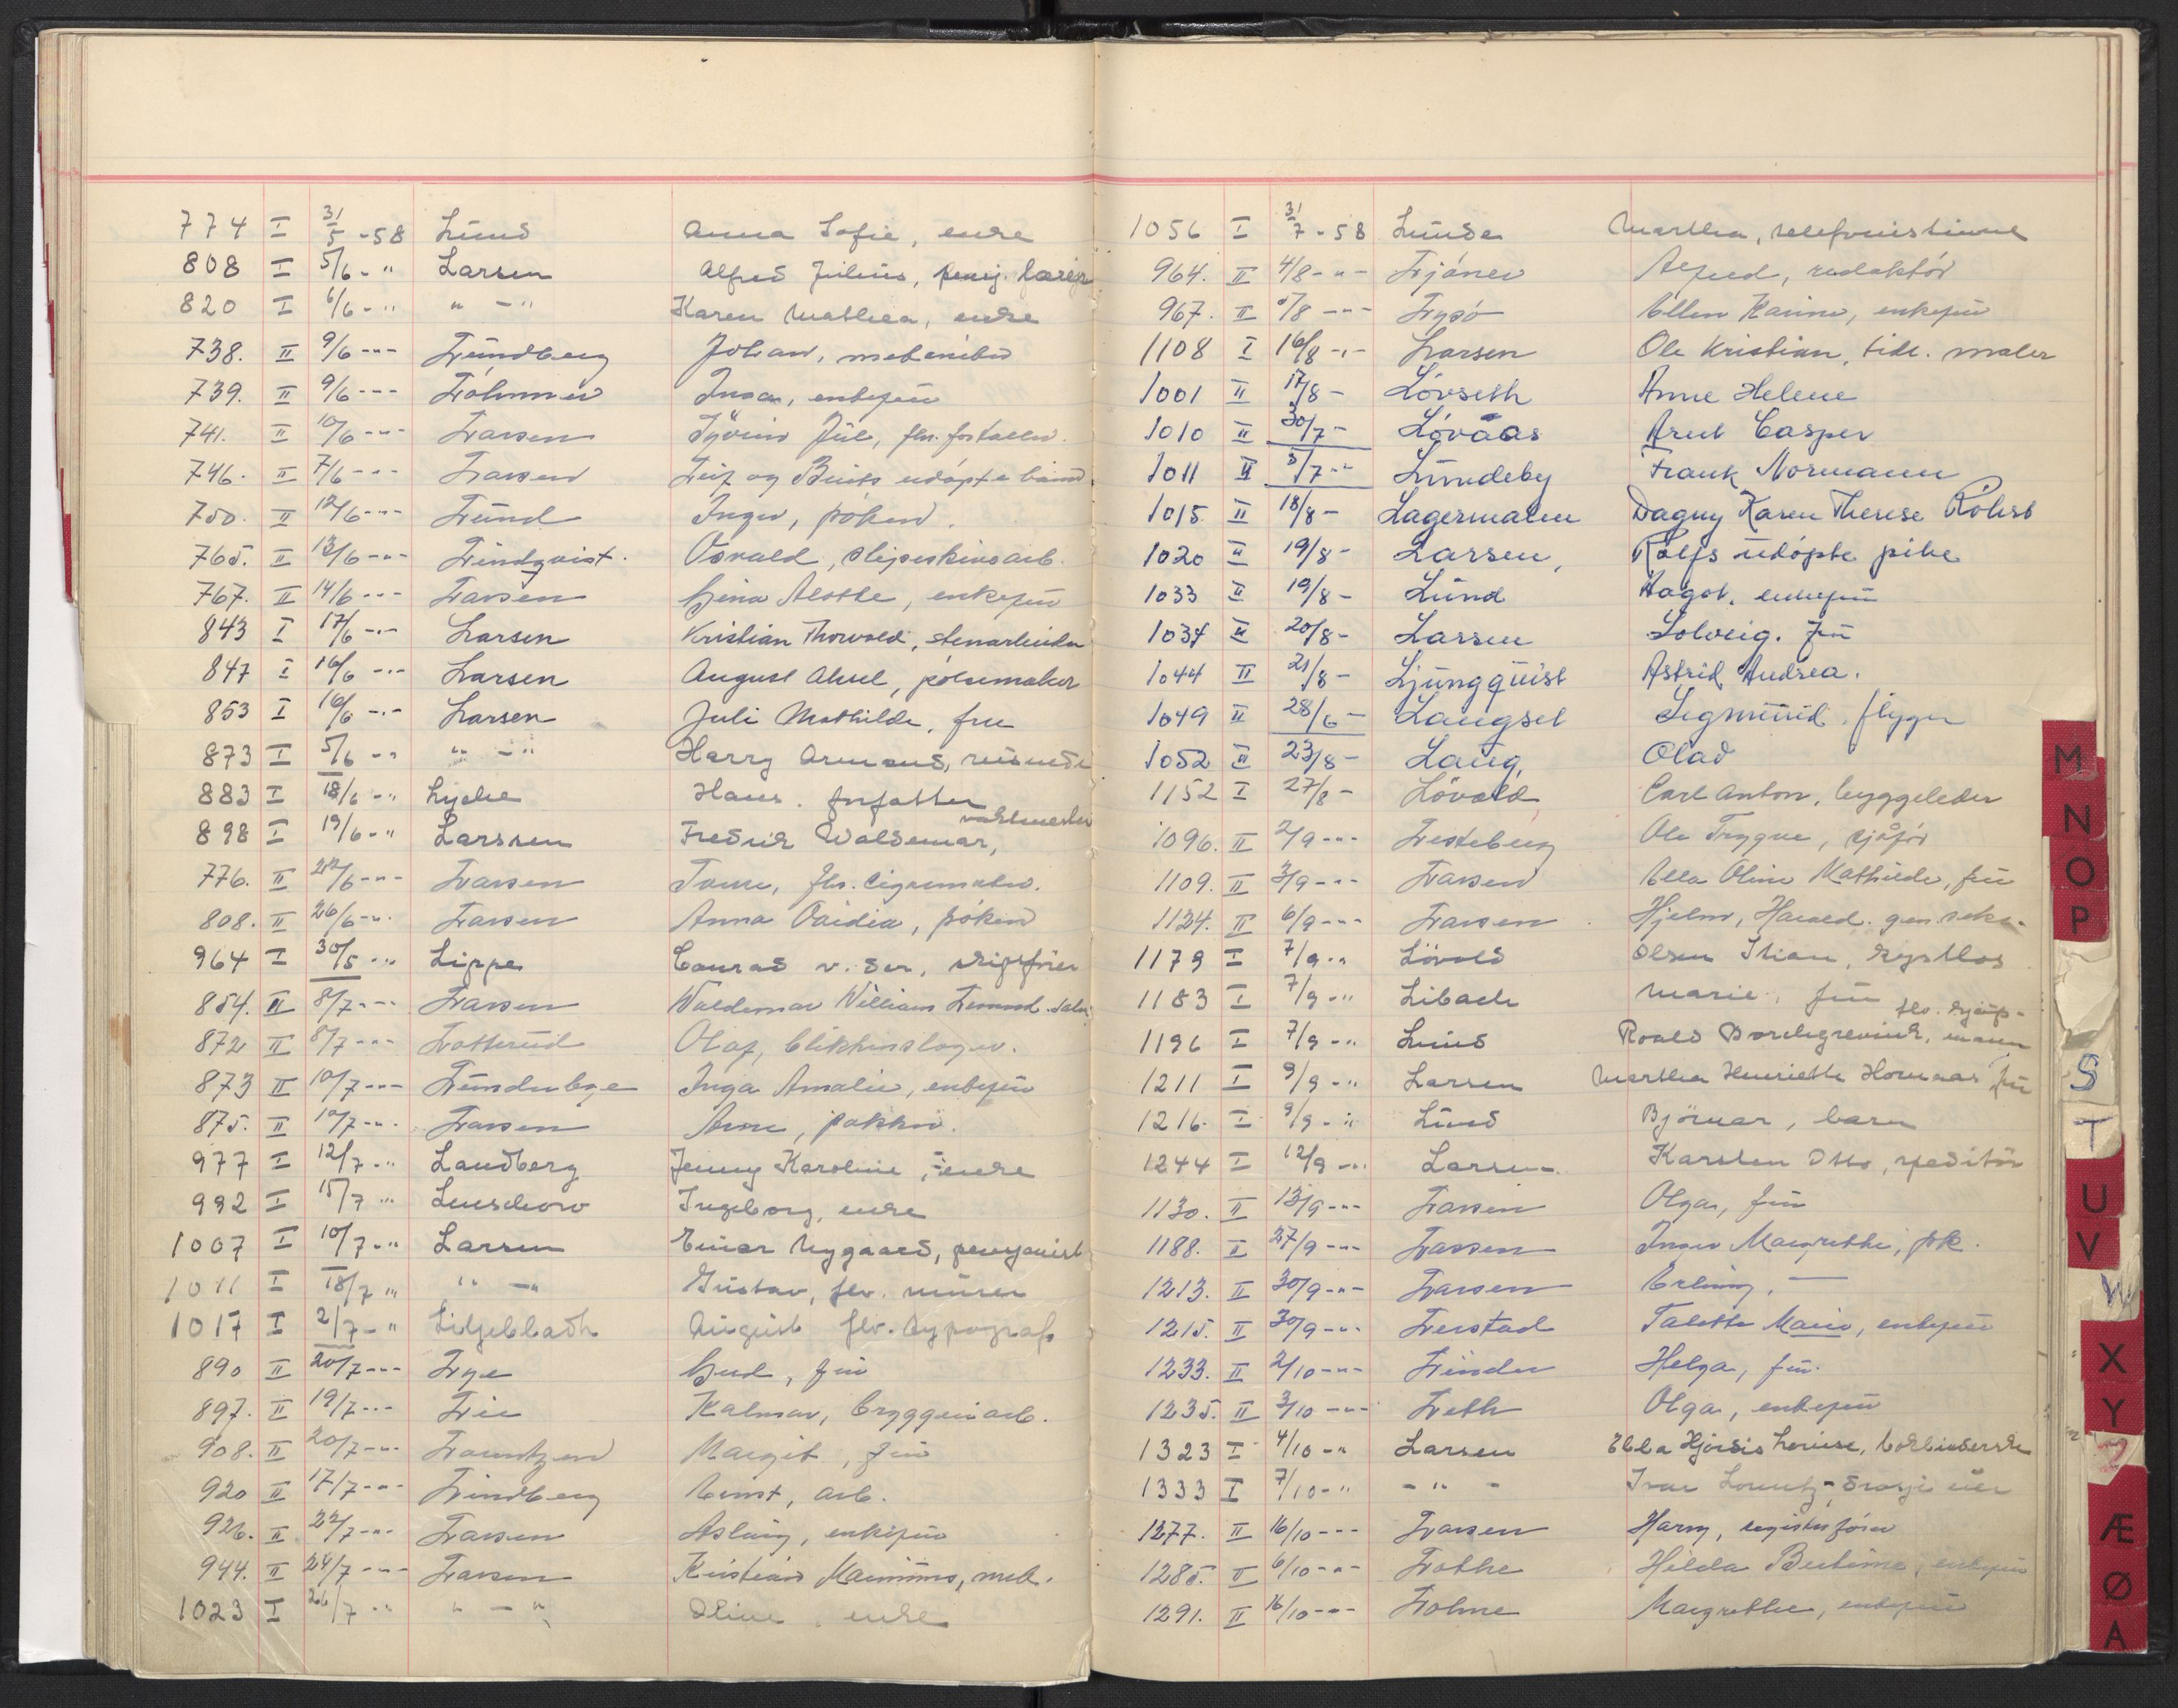 774 I 31/5 - 58 Lund Anna Sofie, enke
808 I 5/6 - " Larsen Alfred Julius, pensj.
820 I 6/6 - " " - " Karen Mathea, enke
738. II 9/6 - " - Lundberg Johan, mekaniker
739. II 9/6 - " - Lohmner Inga, enkefru
741. II 10/6 - " - Larsen Jul, fhv. forvalter.
746. II 7/6 - " - Larsen Leif og Berits udøpte barn
750. II 12/6 - " - Lund Inger, frøken.
765. II 13/6 - " - Lindqvist. Osvald, slipeskivearb.
767. II 14/6 - " - Larsen Gina Alette, enkefru
843 I 17/6 - " - Larsen Kristian Thorvald, stenarbeider
847 I 16/6 - " - Larsen August Aksel, pølsemaker
853 I 16/6 - " - Larsen Juli Mathilde, fru
873 I 5/6 - " " - " Harry Armand,
883 I 18/6 - " Lyche Hans. forfatter
898 I 19/6 - " Larssen Fredrik Waldemar, vaktmester
776. II 22/6 - " - Larsen fhv. sigarmaker.
808. II 26/6 - " . Larsen Anna Vaidia, frøken
964 I 30/5 - " Lippe Conrad v. der, skipsfører
854. II 8/7 - " - Larsen Waldemar William
872 II 8/7 - " - Lotterud Olaf, blikkenslager.
873 II 10/7 - " - Inga Amalie, enkefru
875. II 10/7 - " . Larsen Arne, pakker.
977 I 12/7 - " Landberg Jenny Karoline, enke
992 I 15/7 " Luschow Ingeborg, enke
1007 I 10/7 - " Larsen Einar Nygaard, pensjonist
1011 I 18/7 " " - " Gustav, fhv. murer
1017 I 2/7 - " Liljebladh August fhv. typograf
890 II 20/7 - " - Lye Gud, fru
897. II 19/7 - " - Lie Kalmar, bryggeriarb.
908. II 20/7 - " - Lorentzen Margit, fru
920 II 17/7 - " - Lindberg Ernst, arb.
926. II 22/7 - " - Larsen Aslaug, enkefru
944. II 24/7 - " - Larsen Kristian Maximus, mek.
1023 I 26/7 " " - " Oline, enke
1056 I 31/7 - 58 Lunde Marthea, telefonistinne
964. II 4/8 - " - Ljøner Alfred, redaktør
967. II 5/8 - " - Lysø Ellen Karine, enkefru
1108 I 16/8 - " - Larsen Ole Kristian, tidl. maler
1001 II 17/8 - Lövseth Anne Helene
1010 II 30/7 - Lövaas Arent Casper
1011 II 5/7 - " Lundeby Frank Normann
1015 II 18/8 - Lagermalm Dagny Karen Therese Röhrt
1020 II 19/8 - Larsen, Rolfs udøpte pike
1033 II 19/8 - Lund Aagot, enkefru
1037 II 20/8 - Larsen Solveig. fru
1044 II 21/8 - Ljungquist Astrid Andrea.
1049 II 28/6 - Langset Sigmund, flyger
1052 II 23/8 - Laug, Olav
1152 I 27/8 - Lövold Carl Anton, byggeleder
1096. II 2/9 - " - Lesteberg Ole Trygve, sjåför
1109. II 3/9 - " - Larsen Ella Oline Mathilde, fru
1124. II 6/9 - " - Larsen Hjelm, Harald. gen.sekr.
1179 I 7/9 - " Lövold Olsen Stian,
1183 I 7/9 - " Libach Marie, fru
1196 I 7/9 - " Lund Roald Borchgrevink, fhv. kjøp-mann
1211 I 9/9 - " Larsen Marthea Henriette Hornaas fru
1216. I 9/9 - " Lund Bjørnar, barn
1244 I 12/9 - " Larsen Karsten Otto, speditør
1130. II 13/9 - " - Larsen Olga, fru
1188. II 27/9 - " - Larsen Inger Margrethe, frk.
1213. II 30/9 - " - Larsen Erling, -
1215. II 30/9 - " - Lerstad Talette Marie, enkefru
1233. II 2/10 - " - Linder Helga, fru.
1235. II 3/10 - " - Leth Olga, enkefru
1323 I 4/10 - " Larsen Ebba Hjørdis Louise, bokbinderske
1333 I 7/10 - " - " - Ivar Lorentz,
1277. II 16/10 - " - Larsen Harry, registerfører
1285. II 6/10 - " - Lothe Hilda Bertine, enkefru
1291. II 16/10 - " - Lohne Margrethe, enkefru
M
N
O
P
S
T
U
V
W
X
Y
Z
Æ
Ø
A